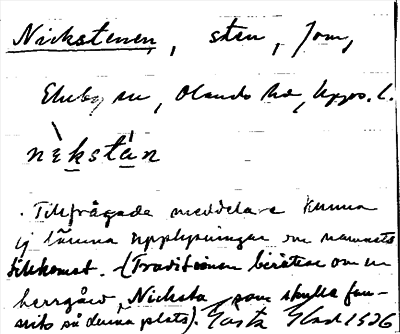 Nickstenen, sten, Jom,
Ekeby sn, Olands hd, Upps. l.
nèkstàn
Tillfrågade meddelare kunna
ej lämna upplysningar om namnets
tillkomst. (Traditionen berättar om en
herrgård, Nicksta, som skulle fun-
nits på denna plats). Gösta 1926